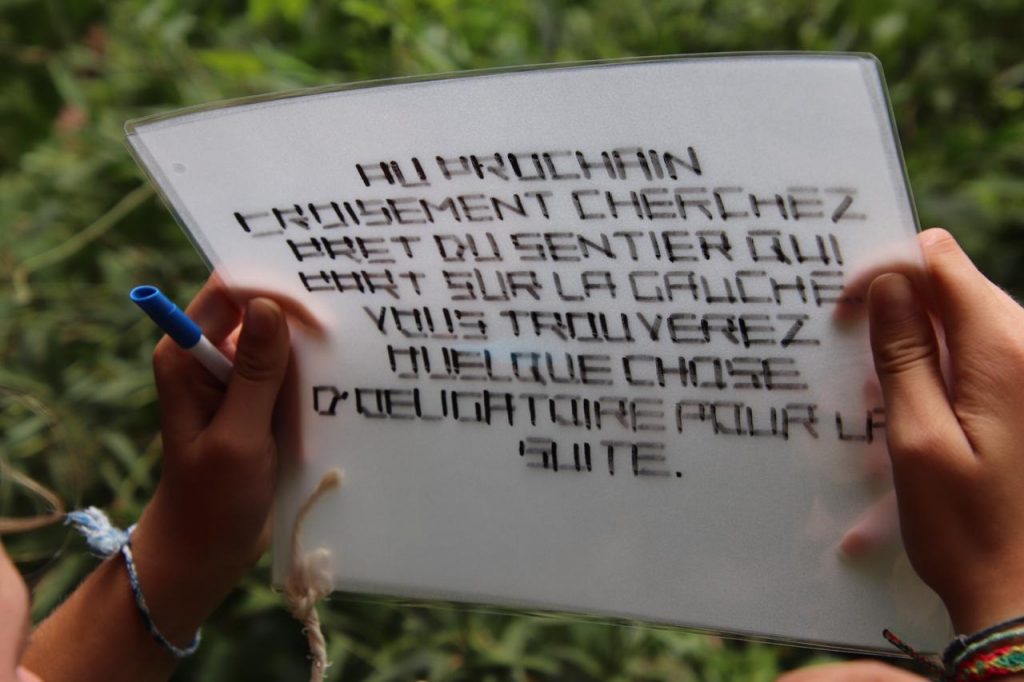 AU PROCHAIN
CROISEMENT CHERCHEZ
PRET DU SENTIER QUI
PART SUR LA GAUCHE.
VOUS TROUVEREZ
QUELQUE CHOSE
D'OBLIGATOIRE POUR LA
SUITE.